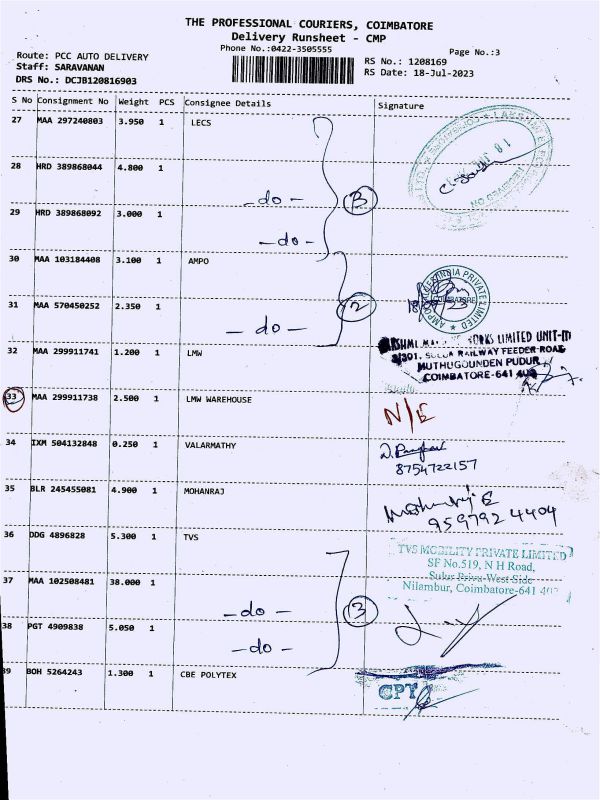 THE PROFESSIONAL COURIERS, COIMBATORE
Delivery Runsheet - CMP
Phone No.:0422-3505555
Page No.:3
Route: PCC AUTO DELIVERY
Staff: SARAVANAN
DRS No.: DCJB120816903
RS No.: 1208169
RS Date: 18-Jul-2023
S No Consignment No Weight PCS Consignee Details Signature
27 MAA 297240803 3.950 1 LECS
28 HRD 389868044 4.800 1 -do-
3
29 HRD 389868092 3.000 1 -do-
30 MAA 103184408 3.100 1 AMPO
COIMBATORE
31 MAA 570450252 2.350 1 -do-
2
32 MAA 299911741 1.200 1 LMW
WORKS LIMITED UNIT-III
RAILWAY FEEDER ROAD
MUTHUGOUNDEN PUDUR
COIMBATORE-641
33 MAA 299911738 2.500 1 LMW WAREHOUSE N/E
34 IXM 504132848 0.250 1 VALARMATHY
8754722157
35 BLR 245455081 4.900 1 MOHANRAJ
959792 4404
36 DDG 4896828 5.300 1 TVS
TVS MOBILITY PRIVATE LIMITED
SF No.519, N H Road,
Nilambur, Coimbatore-641
37 MAA 102508481 38.000 1 -do-
3
38 PGT 4909838 5.050 1 -do-
39 BOH 5264243 1.300 1 CBE POLYTEX
CPT